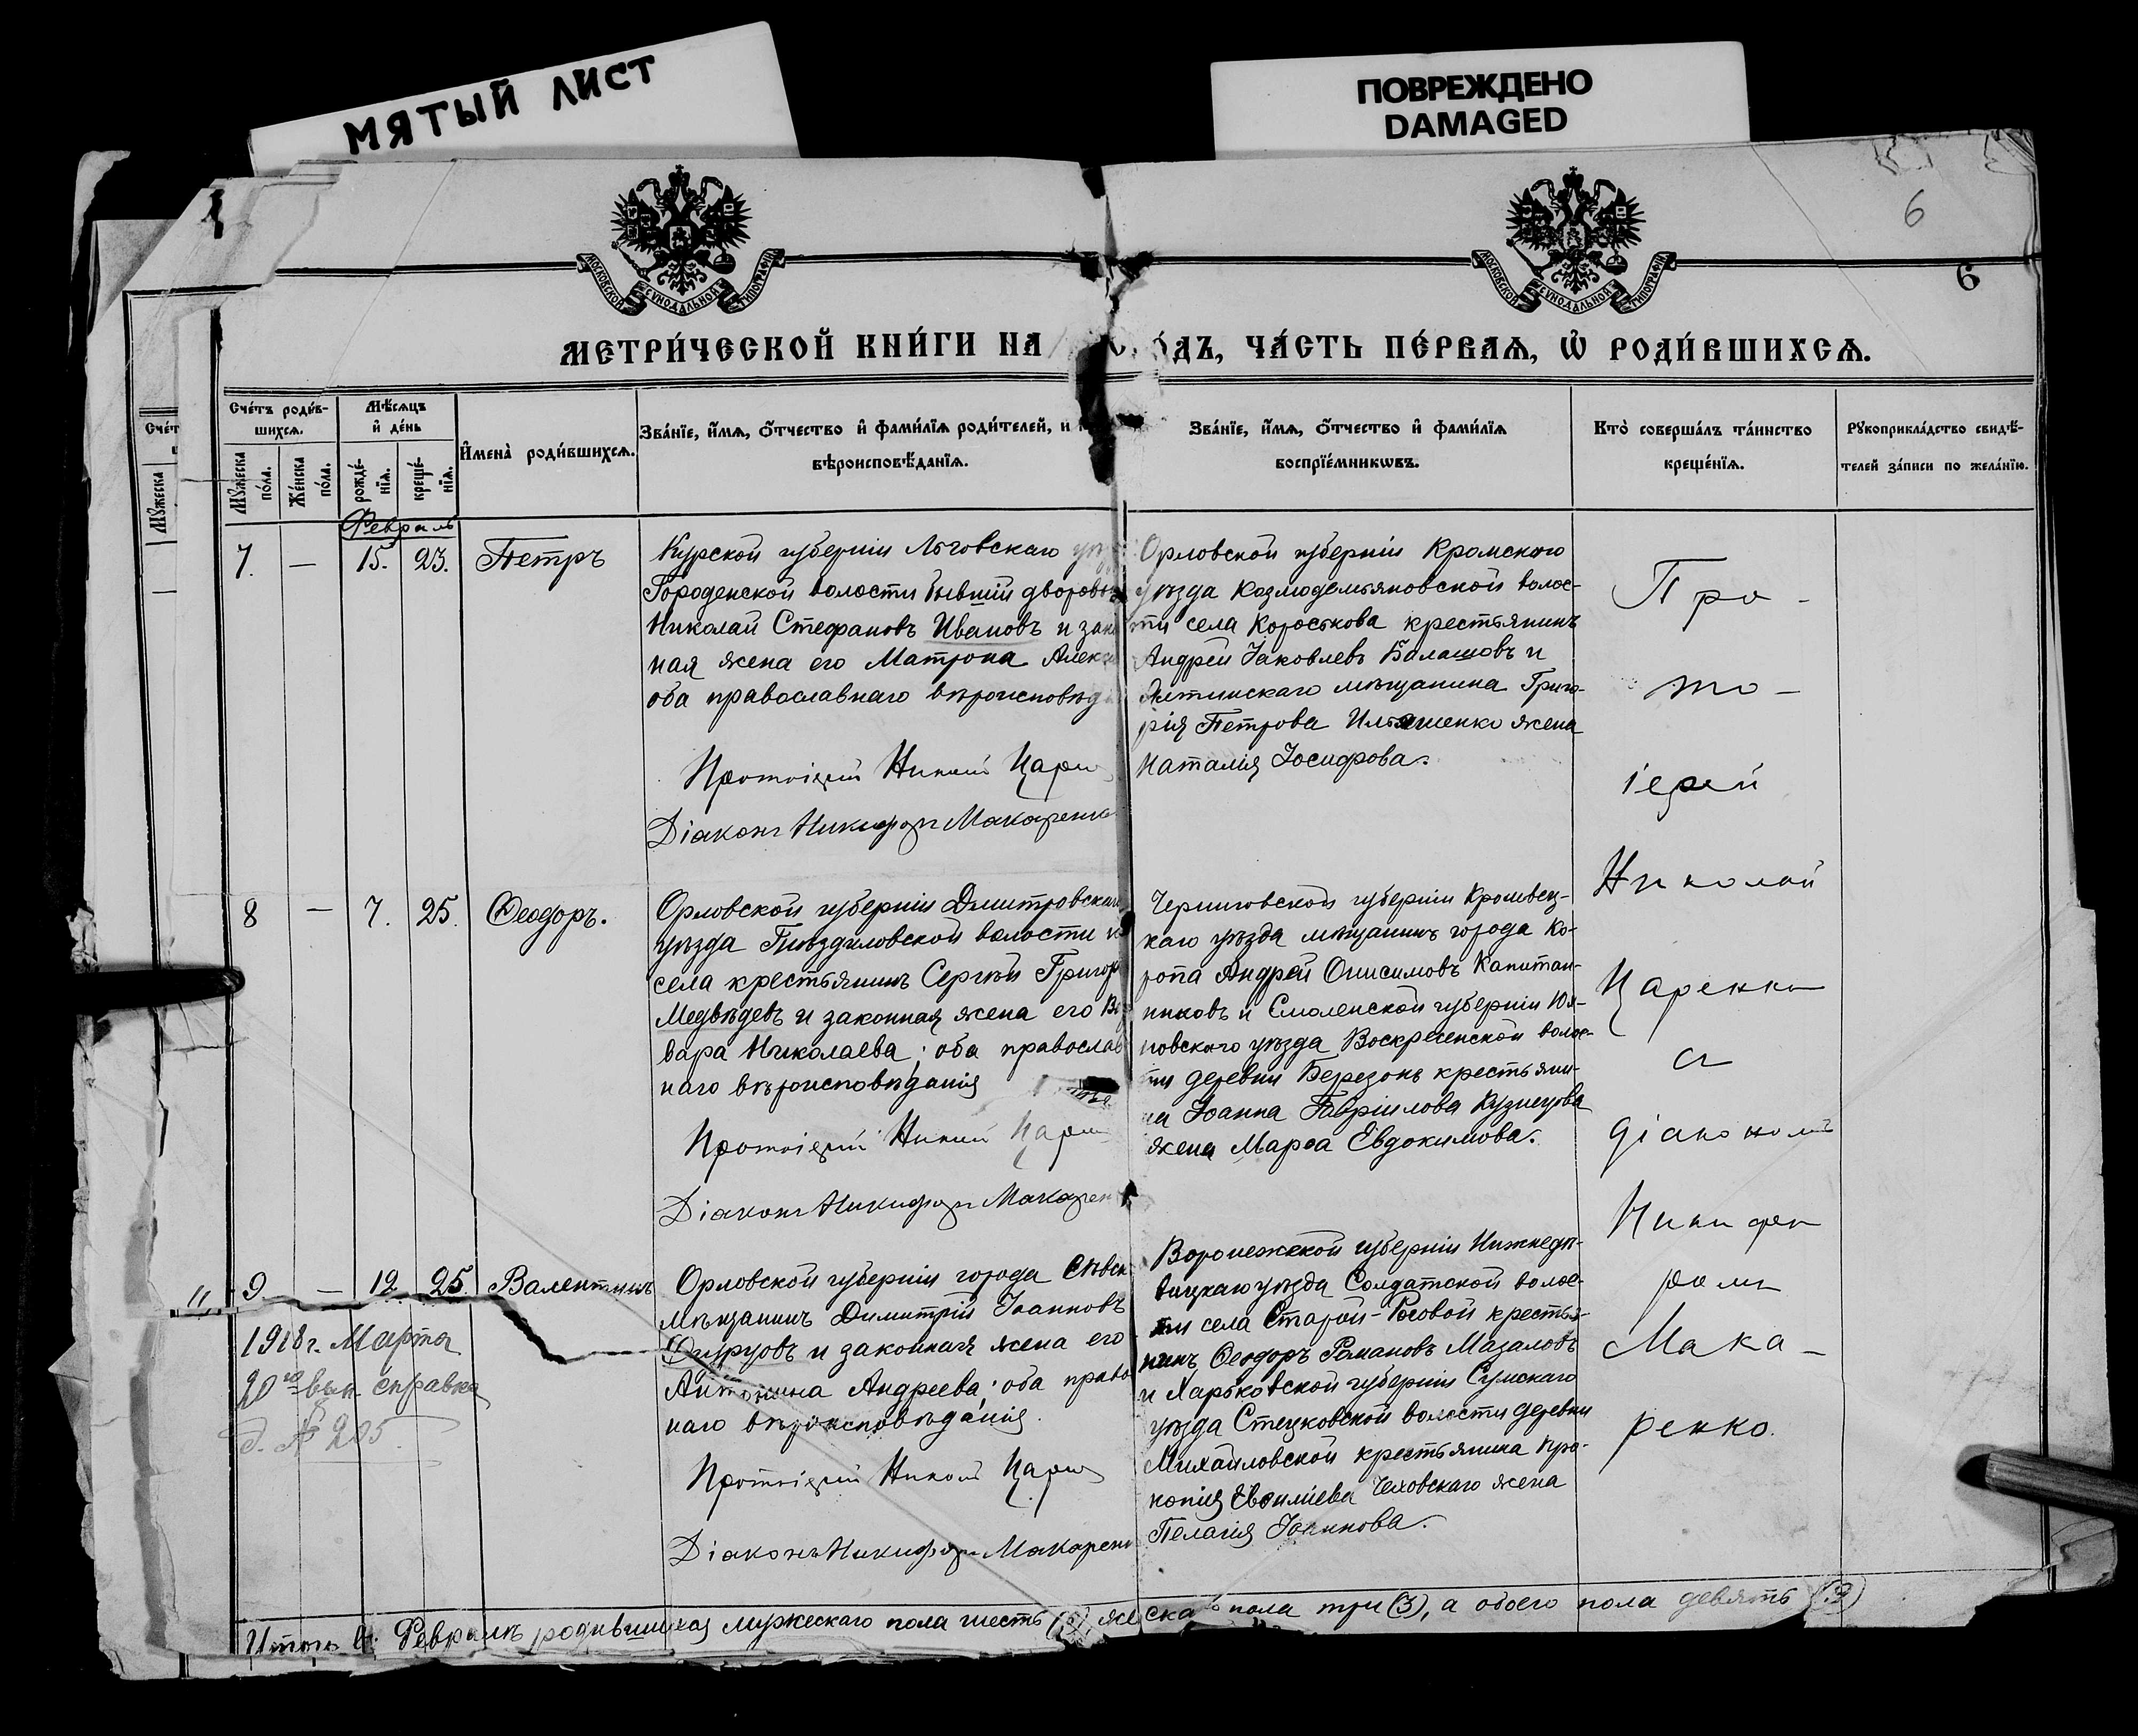 МЯТЫЙ ЛИСТ
ПОВРЕЖДЕНО
DAMAGED
6
6
МОСКОВСКОЙ СѴНОДАЛЬНОЙ ТИПОГРАФІИ
МОСКОВСКОЙ СѴНОДАЛЬНОЙ ТИПОГРАФІИ
МЕТРИ́ЧЕСКОЙ КНИ́ГИ НА ДЪ, ЧА́СТЬ ПЕ́РВАѦ, Ѡ РОДИ́ВШИХСѦ.
Сче́тъ роди́в-
шихсѧ.
Мѣ́сѧцъ
и де́нь
Мꙋжеска по́ла.
Же́нска по́ла.
рожде́-нїѧ.
креще́-нїѧ.
Имена̀ роди́вшихсѧ.
Зва́нїе, и́мѧ, ѻ́тчество и фами́лїѧ роди́телей, и
вѣроисповѣ́данїѧ.
Зва́нїе, и́мѧ, ѻ́тчество и фами́лїѧ
воспрїе́мникѡвъ.
Кто̀ соверша́лъ та́инство
креще́нїѧ.
Рꙋкоприкла́дство свидѣ́-
телей за́писи по жела́нїю.
Сче́т
Мꙋжеска
Февраль
7. — 15. 23. Петръ
Курской губерніи Льговскаго
Городенской волости бывшій дворовы
Николай Стефановъ Ивановъ и зак
ная жена его Матрона Алек
оба православнаго вѣроисповѣд
Протоіерей Николай Царе
Діаконъ Никифоръ Макаренк
Орловской губерніи Кромского
уѣзда Козмодемьяновской волос-
ти села Короськова крестьянинъ
Андрей Іаковлевъ Балашовъ и
Ялтинскаго мѣщанина Григо-
рія Петрова Ильяшенко жена
Наталія Іосифова.
8 — 7. 25. Ѳеодоръ.
Орловской губерніи Дмитровскаго
уѣзда Гнѣздиловской волости и
села крестьянинъ Сергѣй Григор
Медвѣдевъ и законная жена его Ва
вара Николаева; оба православ
наго вѣроисповѣданія
Протоіерей Николай Царе
Діаконъ Никифоръ Макарен
Черниговской губерніи Кролевец-
каго уѣзда мѣщанинъ города Ко-
ропа Андрей Онисимовъ Капитан-
никовъ и Смоленской губерніи Юх-
новского уѣзда Воскресенской волос-
ти деревни Березокъ крестьяни-
на Іоанна Гавріилова Кузнецова
жена Марѳа Евдокимова.
" 9 — 12. 25. Валентинъ
Орловской губерніи города Сѣвск
мѣщанинъ Димитрій Іоанновъ
Фирсовъ и законная жена его
Антонина Андреева; оба право
наго вѣроисповѣданія.
Протоіерей Николай Царе
Діаконъ Никифоръ Макаренк
Воронежской губерніи Нижнедѣ-
вицкаго уѣзда Солдатской волос-
ти села Старой-Роговой крестья-
нинъ Ѳеодоръ Романовъ Мазаловъ
и Харьковской губерніи Сумскаго
уѣзда Стецковской волости деревни
Михайловской крестьянина Про-
копія Чеховскаго жена
Пелагія Іоаннова.
1918 г. Марта
20го выд. справка
д. № 205
Про-
то-
іерей
Николай
Царенко
съ
діакономъ
Никифо
ромъ
Мака-
ренко.
Итого въ Февралѣ родившихся мужескаго пола шесть (6), женскаго пола три (3), а обоего пола девять (9)